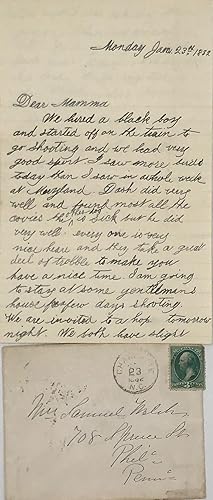 Monday Jan 23rd 1882
Dear Mamma
We hired a black boy
and started off on the train to
go shooting and we had very
good sport I saw more birds
today than I saw in a whole week
at Maryland Dash did very
well and found most all the
covies he is Sick but he did
very well. every one is very
nice hear and they take a great
deel of trobble to make you
have a nice time I am going
to stay at some gentlemens
house for few days shoting.
We are invited to a hop tomorrow
night. We both have slight
23
N.C.
Mrs Samuel Welsh
708 Spruce St
Phila
Penna